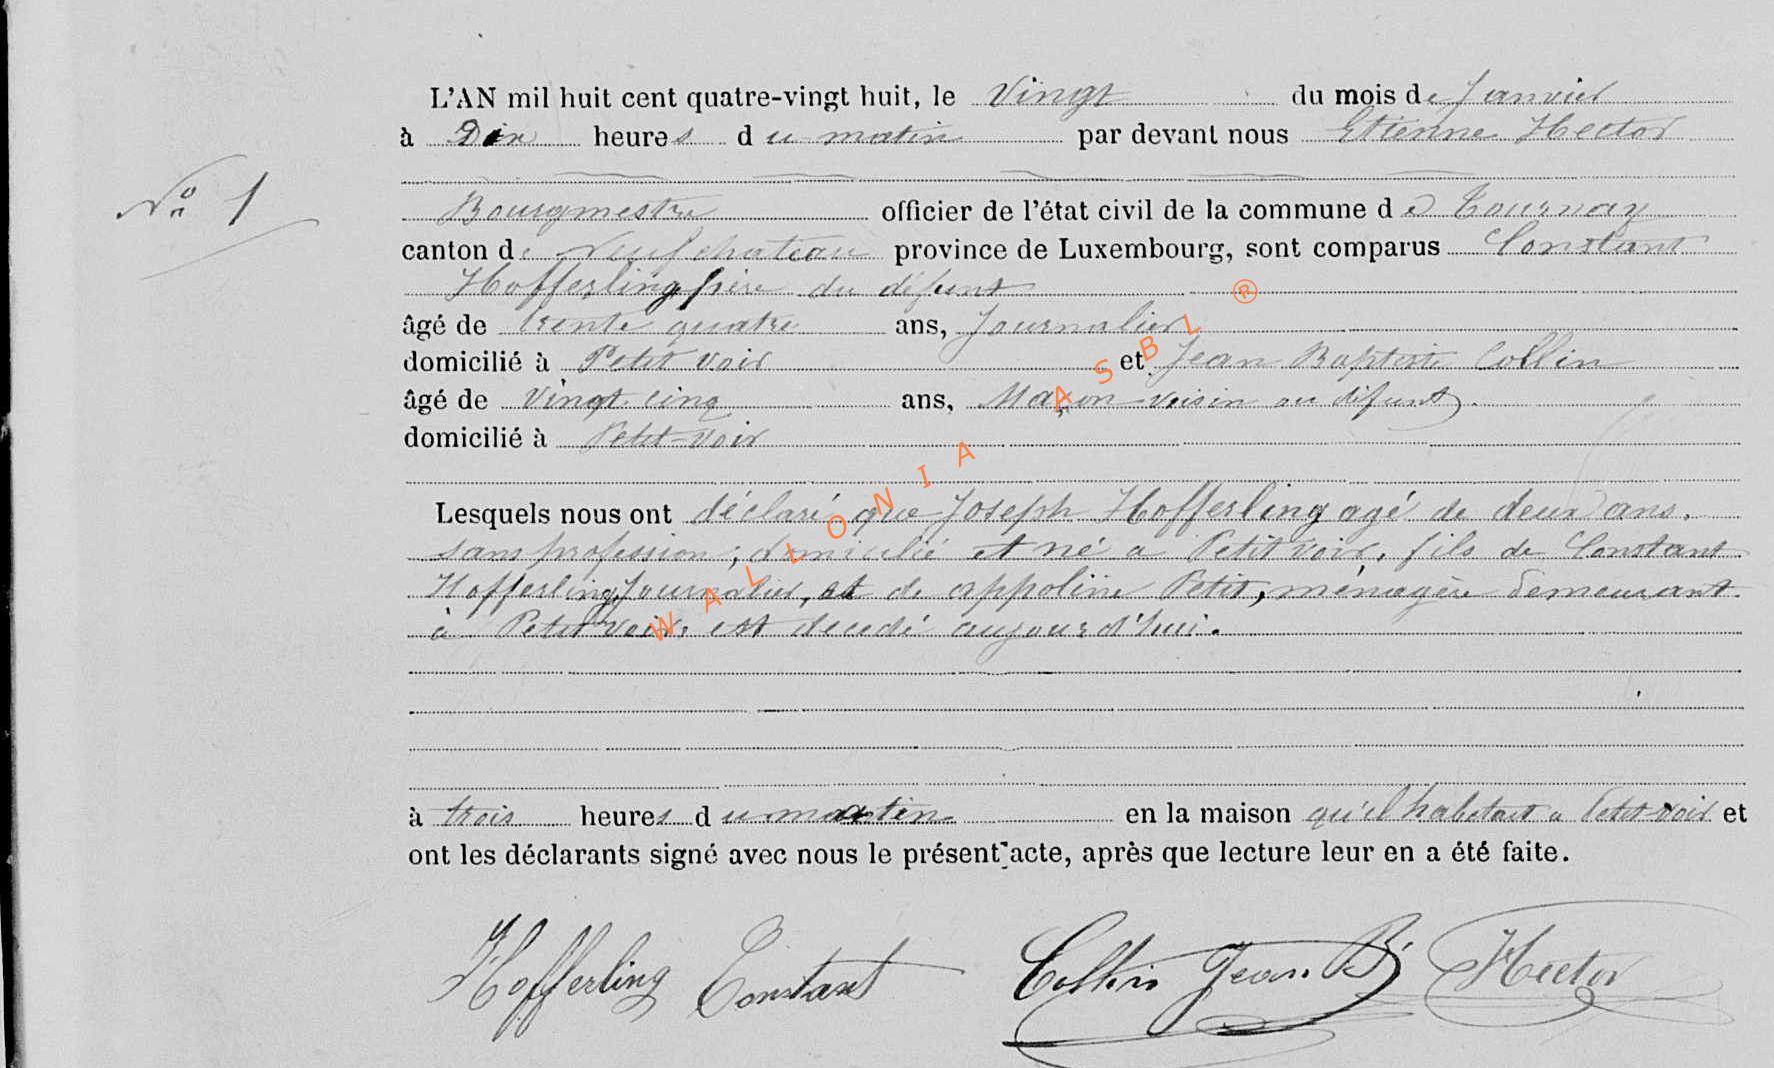 L'AN mil huit cent quatre-vingt huit, le Vingt du mois de Janvier
à Dix heures du matin par devant nous Etienne Hector
N° 1
Bourgmestre officier de l'état civil de la commune de Tournay
canton de Neufchateau province de Luxembourg, sont comparus Constant
Hofferling père du défunt
âgé de trente quatre ans, Journalier
domicilié à Petit voir et Jean Baptiste Collin
âgé de Vingt cinq ans, Maçon voisin au défunt
domicilié à Petit-voir
Lesquels nous ont déclaré que Joseph Hofferling agé de deux ans,
sans profession, domicilié et né a Petitvoir, fils de Constant
Hofferling, Journalier, et de appoline Petit, ménagère demeurant
à Petit voir, est decedé aujourd'hui.
à trois heures du matin en la maison qu'il habitait a Petit-voir et
ont les déclarants signé avec nous le présent acte, après que lecture leur en a été faite.
Hofferling Constant Collin Jean B. Hector
WALLONIA ASBL ®